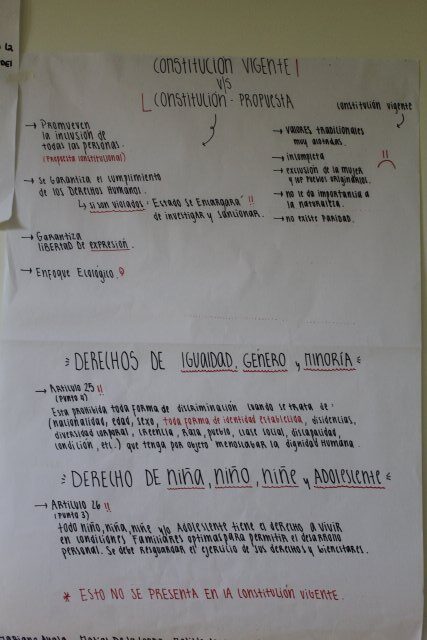 CONSTITUCIÓN VIGENTE
V/S
CONSTITUCIÓN - PROPUESTA
→ PROMUEVEN
la inclusión de
todas las personas.
(Propuesta constitucional)
→ se Garantiza el cumplimiento
de los Derechos Humanos.
↳ si son violados - Estado se encargará
de investigar y sancionar.
→ Garantiza
LIBERTAD DE EXPRESIÓN.
→ Enfoque Ecológico.
constitución vigente
→ VALORES TRADICIONALES
muy
→ incompleta
→ exclusión de la mujer
y los pueblos originarios.
→ no le da importancia a
la naturaleza.
→ no existe PARIDAD.
DERECHOS DE IGUALDAD, GÉNERO y MINORÍA
→ Artículo 25
(Punto 4)
Esta prohibida toda forma de discriminación cuando se trata de
(nacionalidad, edad, sexo, toda forma de identidad establecida, disidencias,
diversidad corporal, creencia, raza, pueblo, clase social, discapacidad,
condición, etc.) que tenga por objeto menoscabar la dignidad Humana.
DERECHO DE niña, niño, niñe y ADOLESCENTE
→ ARTÍCULO 26
(PUNTO 3)
todo niño, niña, niñe y/o ADOLESCENTE tiene el derecho a vivir
en condiciones familiares optimas para permitir el desarrollo
personal. Se debe resguardar el ejercicio de sus derechos y bienestares.
* ESTO NO SE PRESENTA EN LA CONSTITUCIÓN VIGENTE.